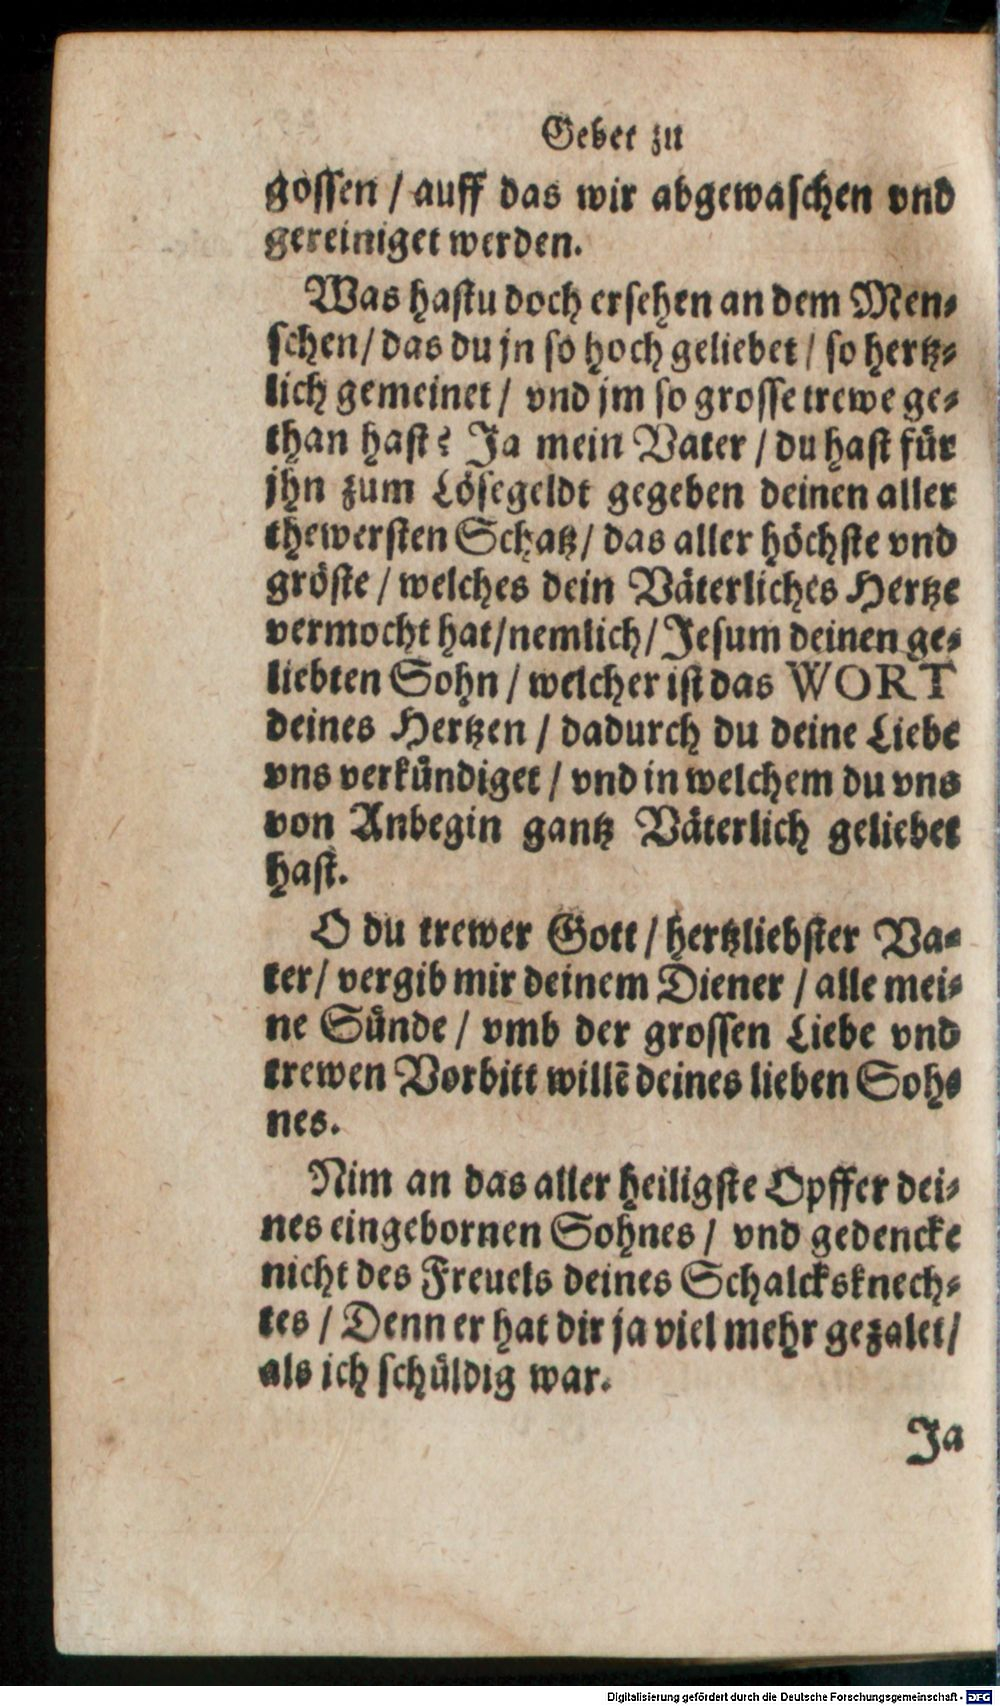 Gebet zu
gossen / auff das wir abgewaschen vnd
gereiniget werden.
Was hastu doch ersehen an dem Men-
schen / das du jn so hoch geliebet / so hertz-
lich gemeinet / vnd jm so grosse trewe ge-
than hast? Ja mein Vater / du hast für
jhn zum Lösegeldt gegeben deinen aller
thewersten Schatz / das aller höchste vnd
gröste / welches dein Väterliches Hertze
vermocht hat / nemlich / Jesum deinen ge-
liebten Sohn / welcher ist das WORT
deines Hertzen / dadurch du deine Liebe
vns verkündiget / vnd in welchem du vns
von Anbegin gantz Väterlich geliebet
hast.
O du trewer Gott / hertzliebster Va-
ter / vergib mir deinem Diener / alle mei-
ne Sünde / vmb der grossen Liebe vnd
trewen Vorbitt willē deines lieben Soh-
nes.
Nim an das aller heiligste Opffer dei-
nes eingebornen Sohnes / vnd gedencke
nicht des Freuels deines Schalcksknech-
tes / Denn er hat dir ja viel mehr gezalet /
als ich schüldig war.
Ja
Digitalisierung gefördert durch die Deutsche Forschungsgemeinschaft - DFG